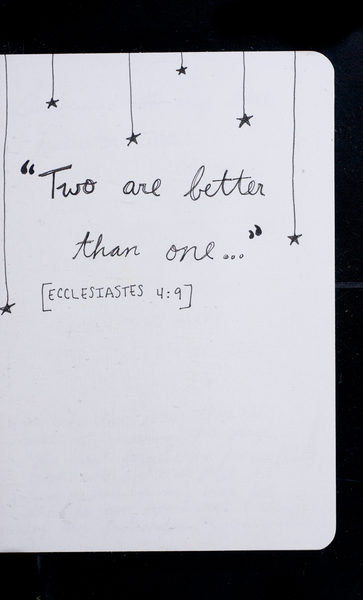 “Two are better
than one...”
[ECCLESIASTES 4:9]